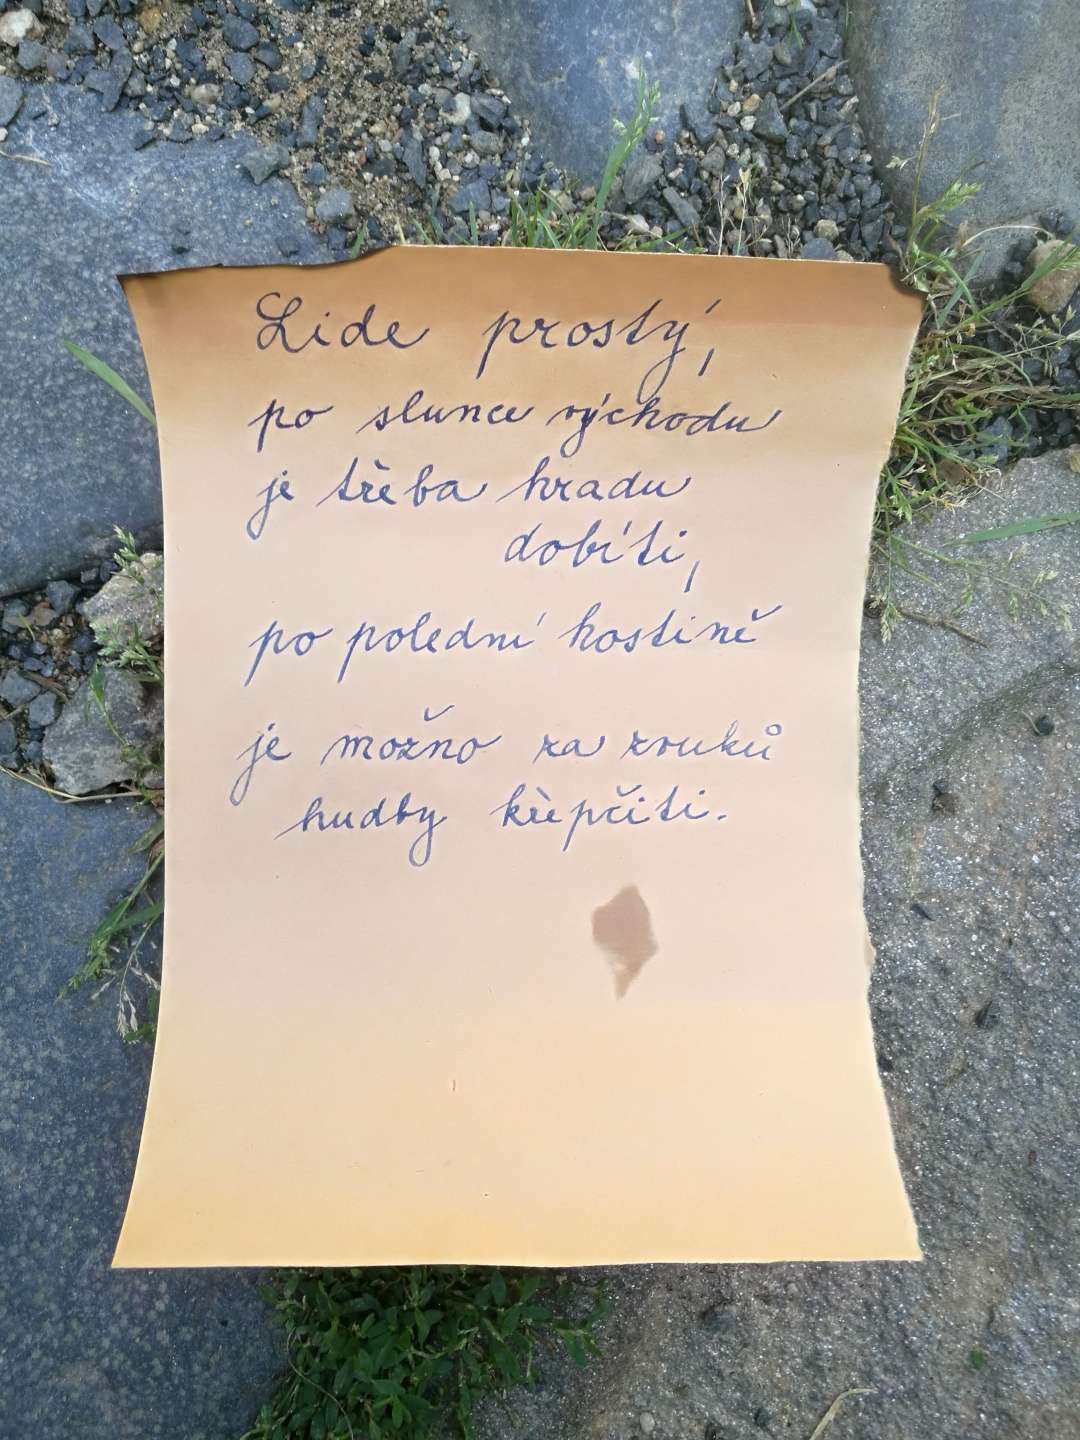 Lide prostý,
po slunce východu
je třeba hradu
dobíti,
po polední hostině
je možno za zvuků
hudby křepčiti.